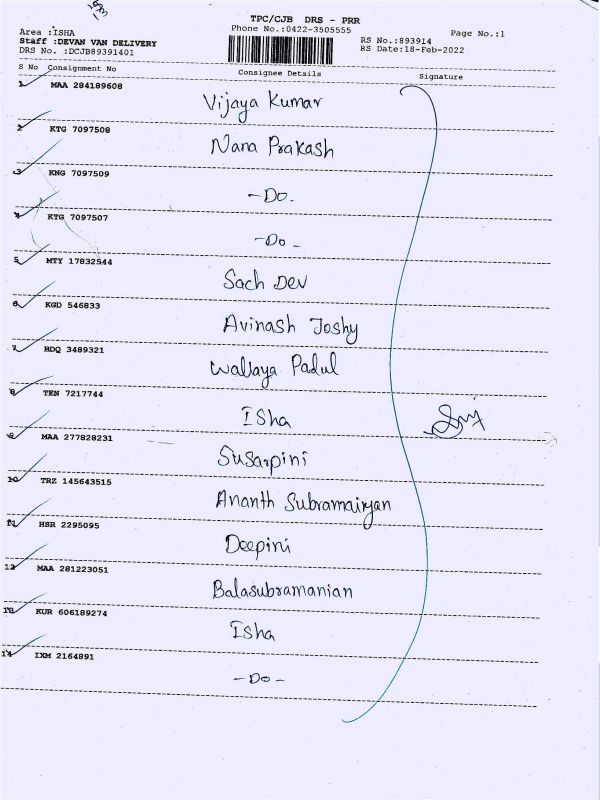 TPC/CJB DRS - PRR
Area :ISHA
Phone No.:0422-3505555
Page No.:1
Staff :DEVAN VAN DELIVERY
RS No.:893914
DRS No. :DCJB89391401
RS Date:18-Feb-2022
S No Consignment No Consignee Details Signature
1 MAA 284189608
Vijaya Kumar
2 KTG 7097508
Nana Prakash
3 KNG 7097509
-Do.
4 KTG 7097507
-Do-
5 MTY 17832544
Sach Dev
6 KGD 546833
Avinash Joshy
7 HDQ 3489321
Wallaya Padul
8 TEN 7217744
ISha
9 MAA 277828231
Susarpini
10 TRZ 145643515
Ananth Subramaiyan
11 HSR 2295095
Deepini
12 MAA 281223051
Balasubramanian
13 KUR 606189274
Isha
14 IXM 2164891
-Do-